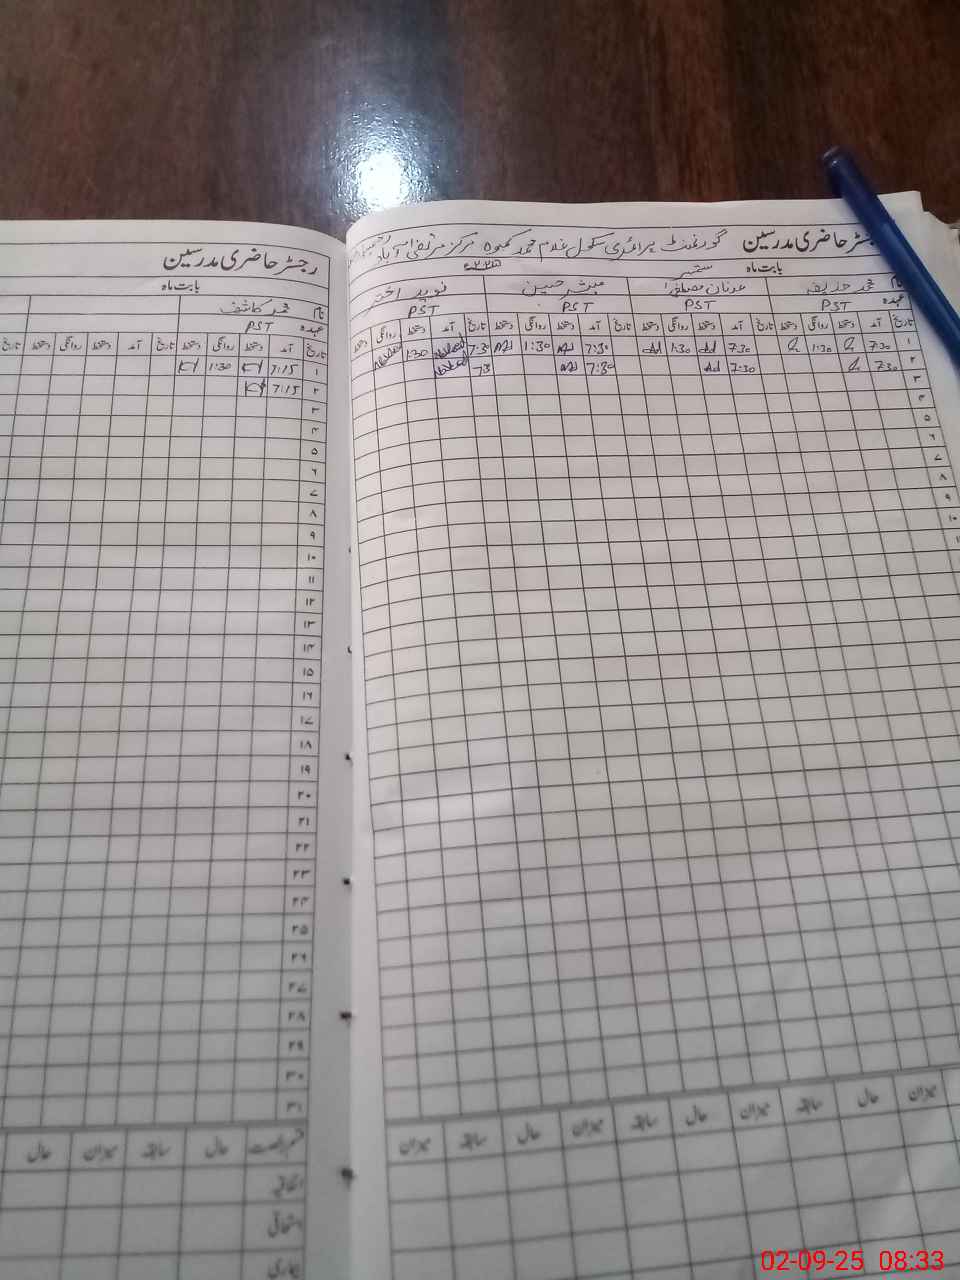 رجسٹر حاضری مدرسین گورنمنٹ پرائمری سکول غلام محمد کمبوہ مرکز مرتضی آباد
بابت ماہ ستمبر ۲۰۲۵ء
نام محمد حذیفہ عدنان مصطفیٰ مبشر حسین نوید اختر
عہدہ PST PST PST PST
تاریخ آمد دستخط روانگی دستخط تاریخ آمد دستخط روانگی دستخط تاریخ آمد دستخط روانگی دستخط تاریخ آمد دستخط روانگی دستخط
۱ 7:30 1:30 7:30 Ad 1:30 Ad 7:30 1:30 7:30 1:30
۲ 7:30 7:30 Ad 7:30 73
۳
۴
۵
۶
۷
۸
۹
۱۰
۱۱
میزان حال سابقہ میزان حال سابقہ میزان حال سابقہ میزان
رجسٹر حاضری مدرسین
بابت ماہ
نام محمد کاشف
عہدہ PST
تاریخ آمد دستخط روانگی دستخط تاریخ آمد دستخط روانگی دستخط تاریخ
۱ 7:15 1:30
۲ 7:15
۳
۴
۵
۶
۷
۸
۹
۱۰
۱۱
۱۲
۱۳
۱۴
۱۵
۱۶
۱۷
۱۸
۱۹
۲۰
۲۱
۲۲
۲۳
۲۴
۲۵
۲۶
۲۷
۲۸
۲۹
۳۰
۳۱
قسم رخصت حال سابقہ میزان حال
اتفاقیہ
استحقاقی
بیماری
02-09-25 08:33